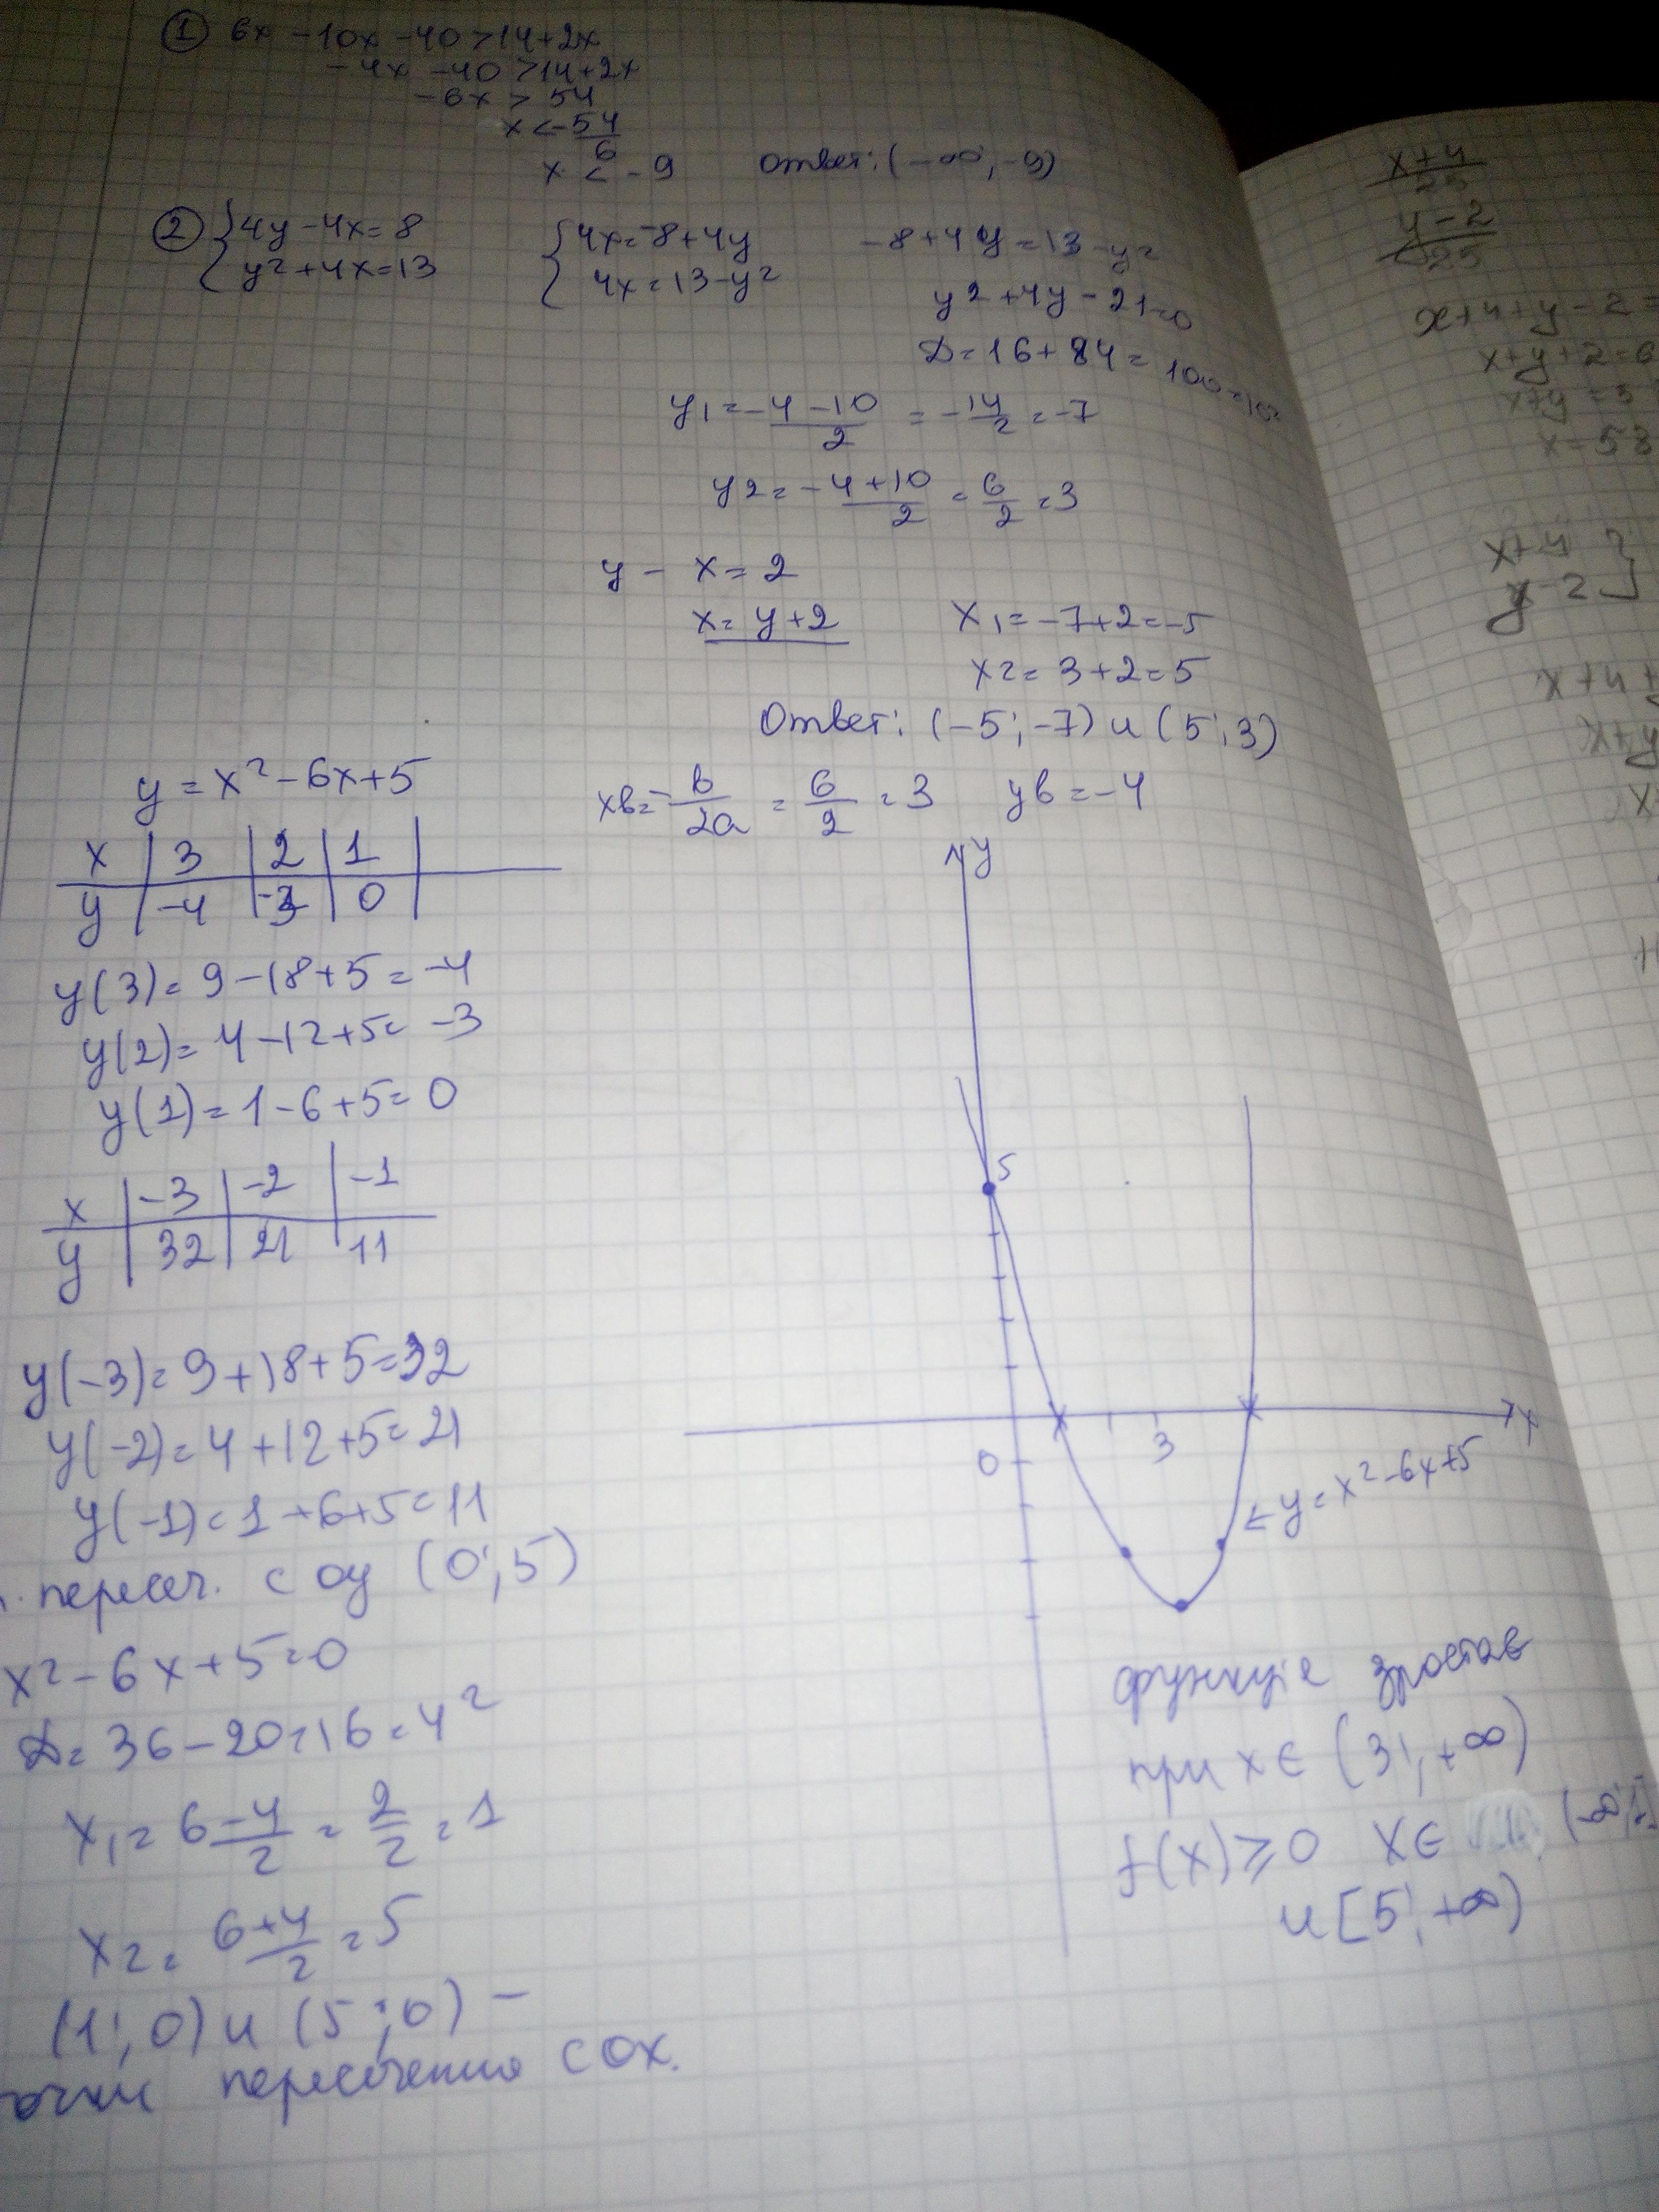 ① 6x -10x -40>14+2x
-4x -40>14+2x
-6x > 54
x<-54/6
x < -9 Ответ: (-∞; -9)
② {4y-4x=8 {4x=-8+4y -8+4y=13-y²
{y²+4x=13 {4x=13-y² y²+4y-21=0
D=16+84=100=10²
y1=-4-10/2 = -14/2 = -7
y2=-4+10/2 = 6/2 = 3
y - x=2
x= y+2 x1=-7+2=-5
x2= 3+2=5
Ответ: (-5; -7) и (5; 3)
y=x²-6x+5 xв=-b/2a = 6/2 = 3 yв=-4
x | 3 | 2 | 1
y | -4 | -3 | 0
y(3)= 9-18+5=-4
y(2)= 4-12+5= -3
y(1)=1-6+5=0
x | -3 | -2 | -1
y | 32 | 21 | 11
y(-3)=9+18+5=32
y(-2)=4+12+5=21
y(-1)=1+6+5=11
пересеч. с oy (0; 5)
x²-6x+5=0
D=36-20=16=4²
x1=6-4/2 = 2/2 = 1
x2= 6+4/2 = 5
(1; 0) и (5; 0) -
точки пересечения с ox.
y
5
0
3
x
← y=x²-6x+5
функція зростає
при x∈ (3; +∞)
f(x)≥0 x∈ (-∞; 1]
и [5; +∞)
x+4/25
y-2/25
x+4+y-2=
x+y+2=6
x+4 }
y-2